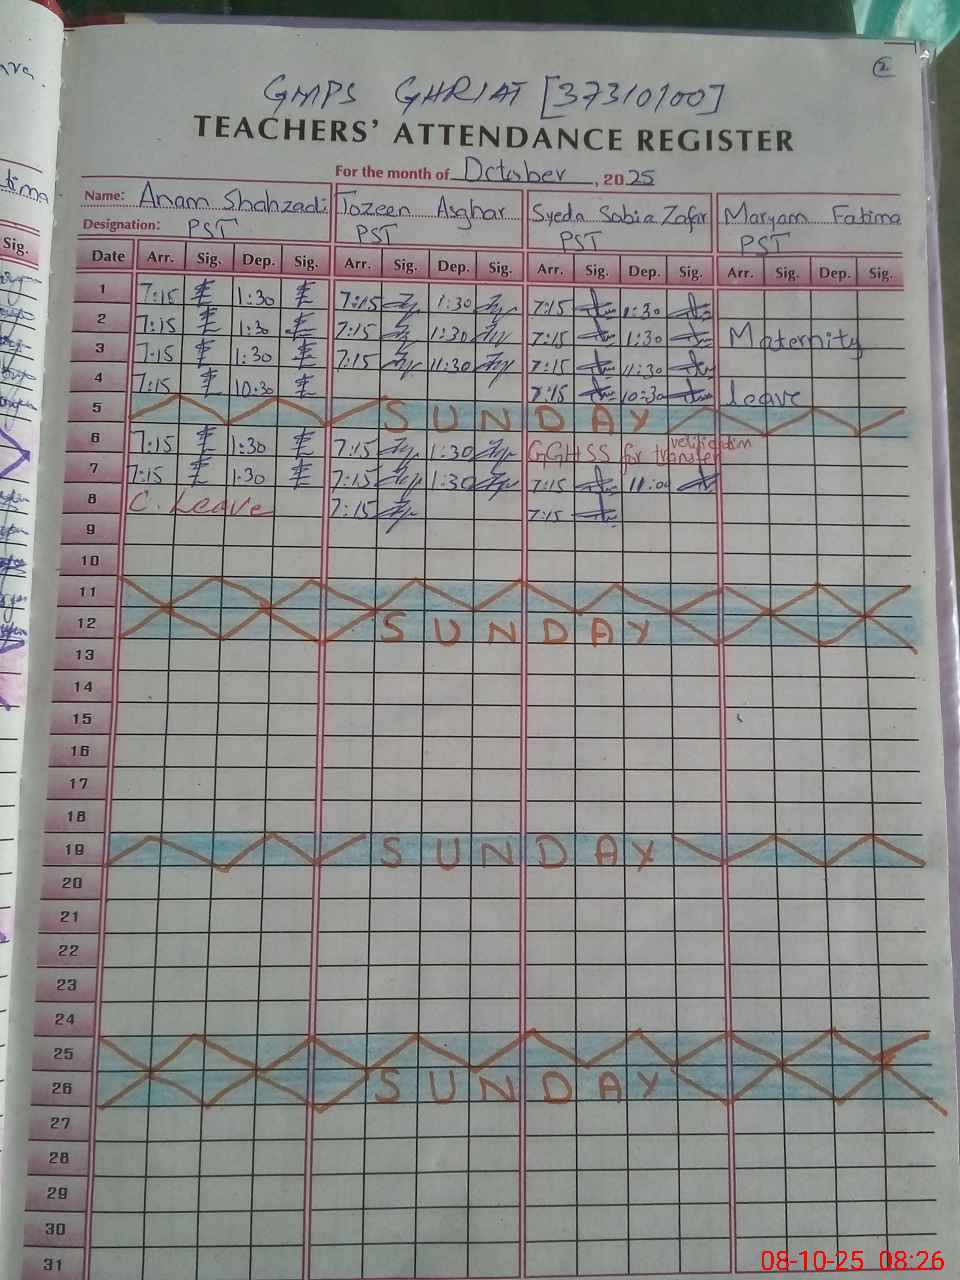 2
GMPS GHRIAT [37310100]
TEACHERS' ATTENDANCE REGISTER
For the month of October, 2025
Name: Anam Shahzadi Tozeen Asghar Syeda Sabia Zafar Maryam Fatima
Designation: PST PST PST PST
Sig.
Date Arr. Sig. Dep. Sig. Arr. Sig. Dep. Sig. Arr. Sig. Dep. Sig. Arr. Sig. Dep. Sig.
1 7:15 1:30 7:15 1:30 7:15 1:30
2 7:15 1:30 7:15 1:30 7:15 1:30 Maternity
3 7:15 1:30 7:15 11:30 7:15 11:30
4 7:15 10:30 7:15 10:30 leave
5 SUNDAY
6 7:15 1:30 7:15 1:30 GGHSS for transfer verification
7 7:15 1:30 7:15 1:30 7:15 11:00
8 C. Leave 7:15 7:15
9
10
11
12 SUNDAY
13
14
15
16
17
18
19 SUNDAY
20
21
22
23
24
25
26 SUNDAY
27
28
29
30
31
08-10-25 08:26